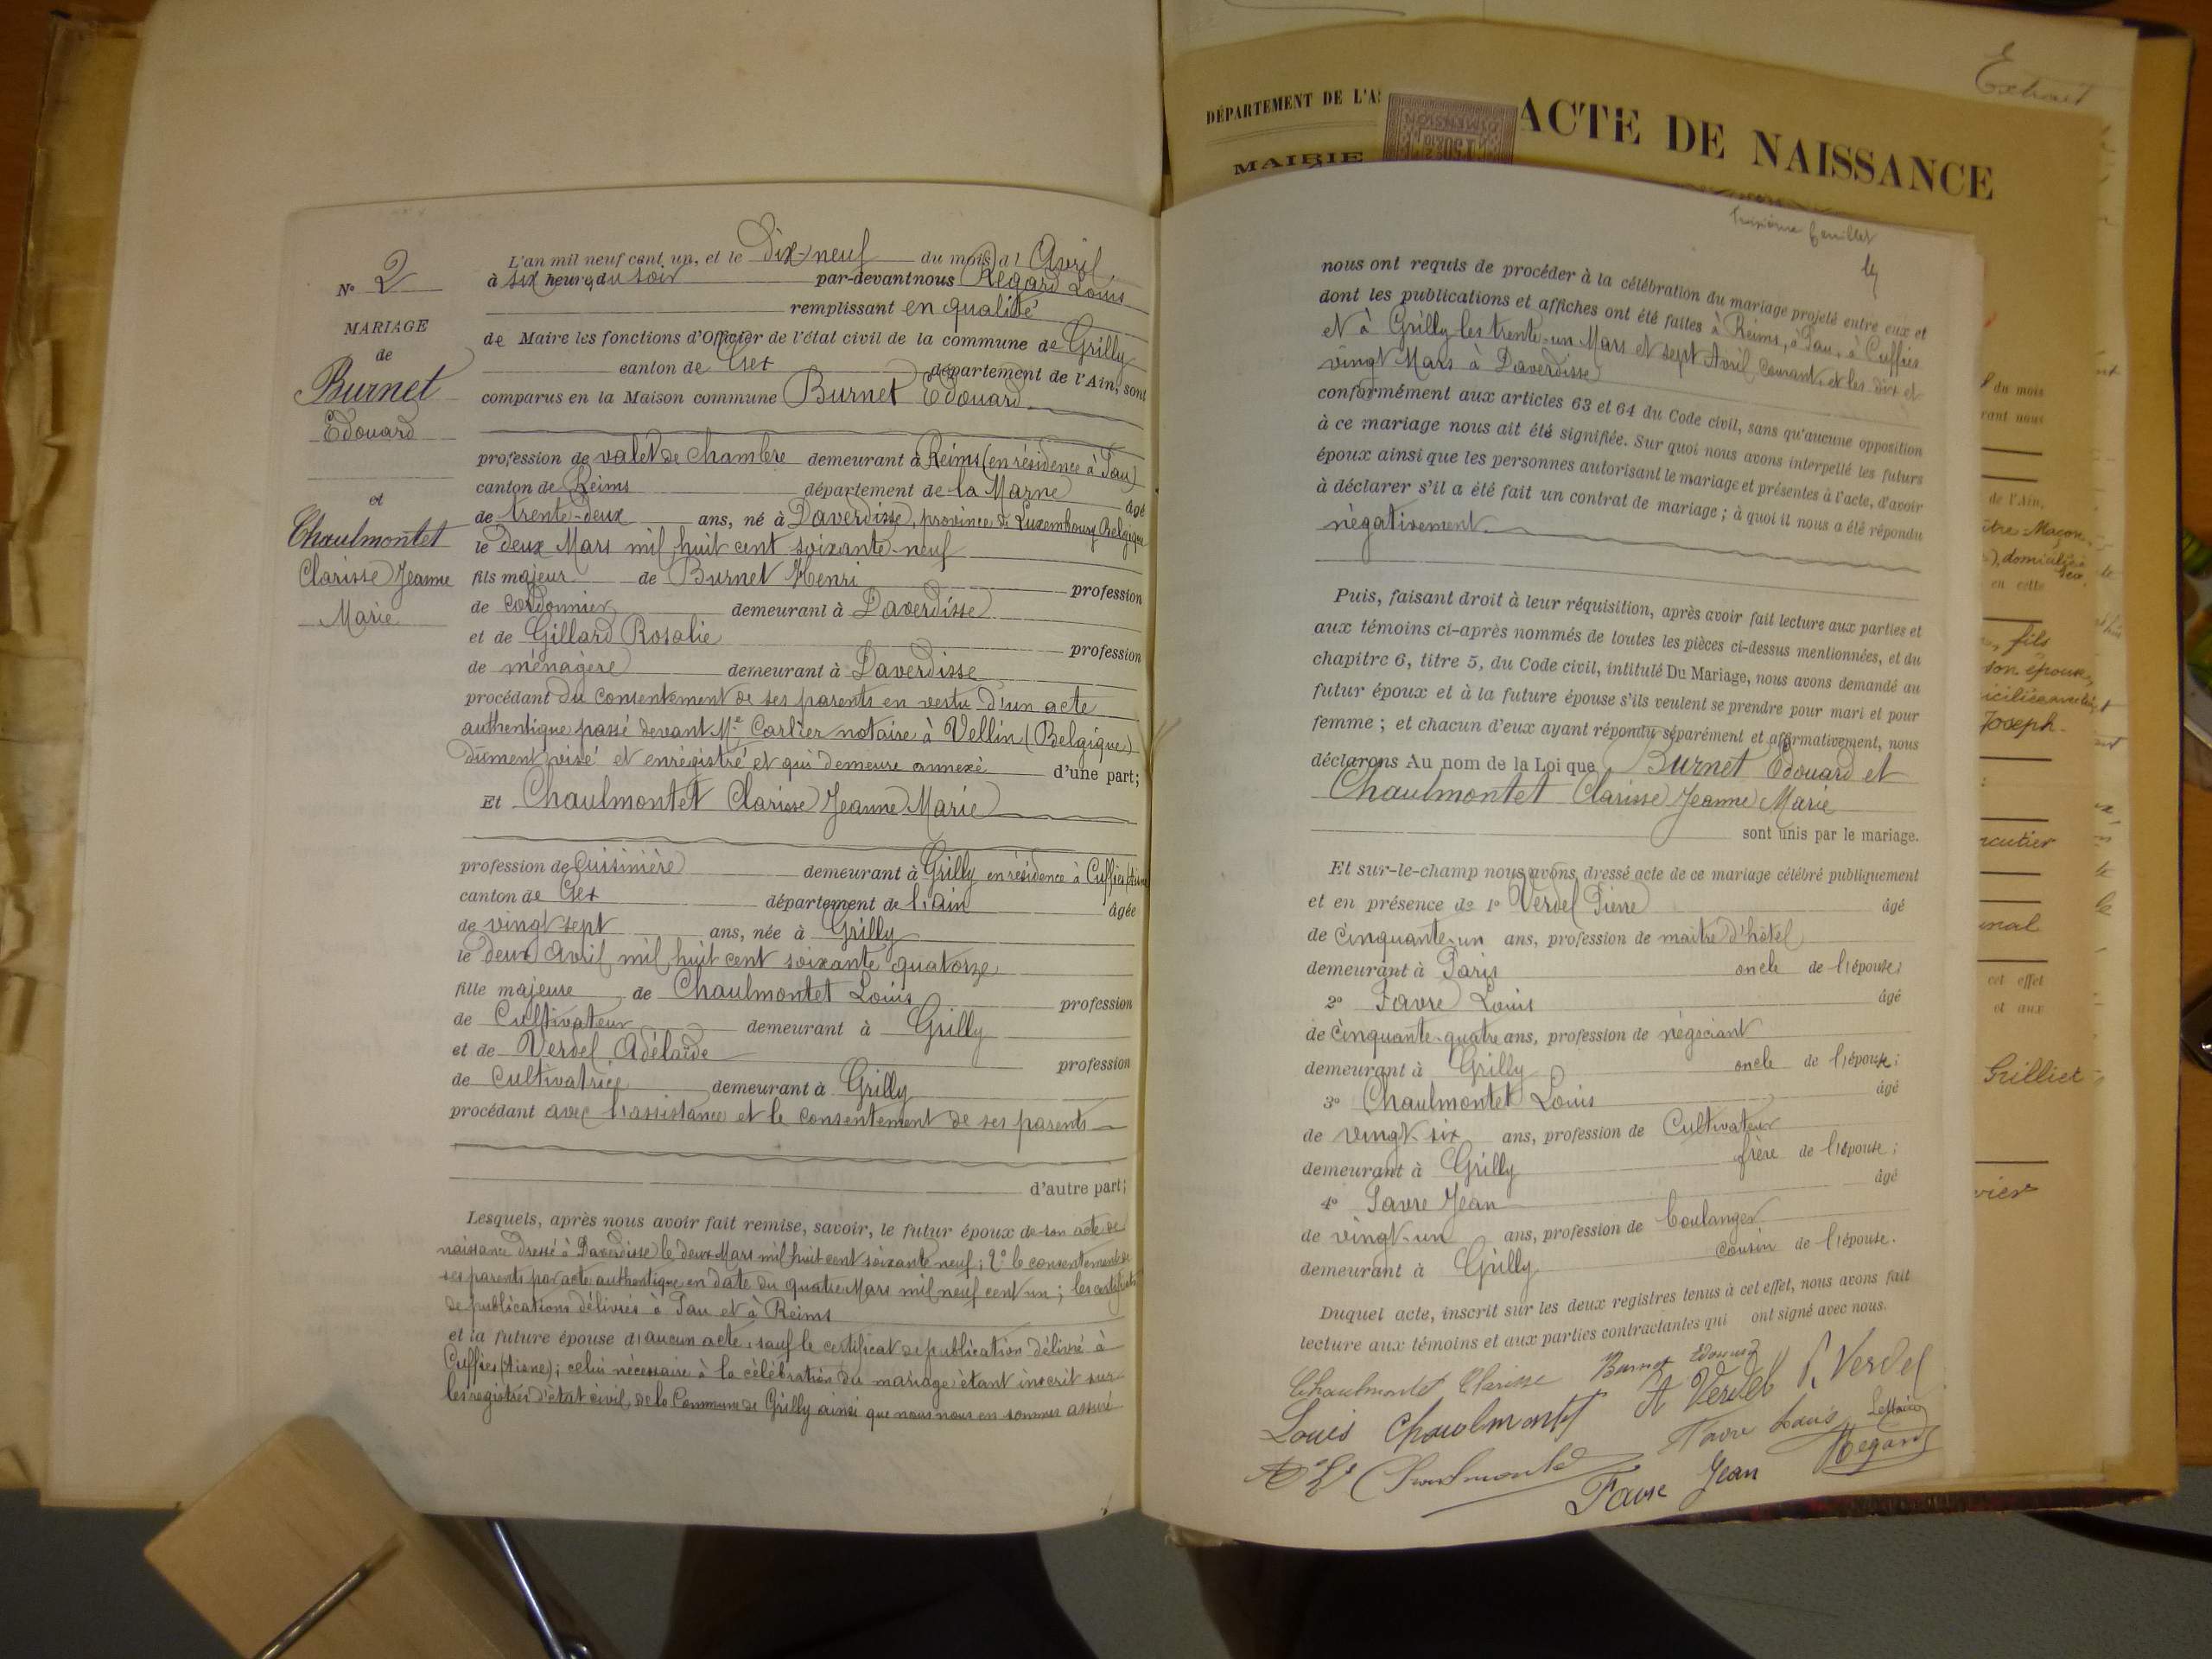 N° 2
MARIAGE
de
Burnet
Edouard
et
Chaulmontet
Clarisse Jeanne
Marie
L'an mil neuf cent un, et le Dix-neuf du mois d'Avril
à six heures du soir par-devant nous Regard Louis
remplissant en qualité
de Maire les fonctions d'Officier de l'état civil de la commune de Grilly
canton de Gex département de l'Ain, sont
comparus en la Maison commune Burnet Edouard
profession de valet de chambre demeurant à Reims (en résidence à Pau)
canton de Reims département de la Marne âgé
de trente-deux ans, né à Daverdisse, province de Luxembourg Belgique
le deux Mars mil huit cent soixante-neuf
fils majeur de Burnet Henri profession
de cordonnier demeurant à Daverdisse
et de Gillard Rosalie profession
de ménagère demeurant à Daverdisse
procédant du consentement de ses parents en vertu d'un acte
authentique passé devant Me Carlier notaire à Vellin (Belgique)
dûment visé et enrégistré et qui demeure annexé d'une part;
Et Chaulmontet Clarisse Jeanne Marie
profession de Cuisinière demeurant à Grilly en résidence à Cuffies (Aisne
canton de Gex département de l'Ain âgée
de vingt sept ans, née à Grilly
le deux Avril mil huit cent soixante quatorze
fille majeure de Chaulmontet Louis profession
de Cultivateur demeurant à Grilly
et de Verdel Adélaïde profession
de Cultivatrice demeurant à Grilly
procédant avec l'assistance et le consentement de ses parents
d'autre part;
Lesquels, après nous avoir fait remise, savoir, le futur époux de son acte de
naissance dressé à Daverdisse le deux Mars mil huit cent soixante neuf; 2° le consentement de
ses parents par acte authentique en date du quatre Mars mil neuf cent un; les certificats
de publications délivrés à Pau et à Reims
et la future épouse d'aucun acte, sauf le certificat de publication délivré à
Cuffies (Aisne); celui nécessaire à la célébration du mariage étant inscrit sur
les registres d'état civil de la Commune de Grilly ainsi que nous nous en sommes assuré
Extrait
DÉPARTEMENT DE L'A
MAIRIE
ACTE DE NAISSANCE
troisième feuillet
nous ont requis de procéder à la célébration du mariage projeté entre eux et
dont les publications et affiches ont été faites à Reims, à Pau, à Cuffies
et à Grilly les trente-un Mars et sept Avril courant, et les dix et
vingt Mars à Daverdisse
conformément aux articles 63 et 64 du Code civil, sans qu'aucune opposition
à ce mariage nous ait été signifiée. Sur quoi nous avons interpellé les futurs
époux ainsi que les personnes autorisant le mariage et présentes à l'acte, d'avoir
à déclarer s'il a été fait un contrat de mariage; à quoi il nous a été répondu
négativement
Puis, faisant droit à leur réquisition, après avoir fait lecture aux parties et
aux témoins ci-après nommés de toutes les pièces ci-dessus mentionnées, et du
chapitre 6, titre 5, du Code civil, intitulé Du Mariage, nous avons demandé au
futur époux et à la future épouse s'ils veulent se prendre pour mari et pour
femme; et chacun d'eux ayant répondu séparément et affirmativement, nous
déclarons Au nom de la Loi que Burnet Edouard et
Chaulmontet Clarisse Jeanne Marie
sont unis par le mariage.
Et sur-le-champ nous avons dressé acte de ce mariage célébré publiquement
et en présence de 1° Verdel Pierre âgé
de cinquante-un ans, profession de maître d'hôtel
demeurant à Paris oncle de l'épouse;
2° Favre Louis âgé
de cinquante-quatre ans, profession de négociant
demeurant à Grilly oncle de l'épouse;
3° Chaulmontet Louis âgé
de vingt-six ans, profession de Cultivateur
demeurant à Grilly frère de l'épouse;
4° Favre Jean âgé
de vingt-un ans, profession de boulanger
demeurant à Grilly cousin de l'épouse.
Duquel acte, inscrit sur les deux registres tenus à cet effet, nous avons fait
lecture aux témoins et aux parties contractantes qui ont signé avec nous.
Chaulmontet Clarisse Burnet Edouard
Louis Chaulmontet A Verdel P. Verdel
Chaulmontet Favre Louis Le Maire
Favre Jean Regard
du mois
de l'Ain,
en cette
fils
son épouse
Joseph
cet effet
et aux
Grilliet